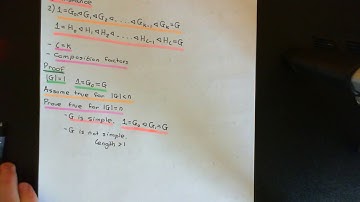 2) 1 = G₀ ◁ G₁ ◁ G₂ ◁ . . . ◁ Gₖ₋₁ ◁ Gₖ = G
1 = H₀ ◁ H₁ ◁ H₂ ◁ . . . ◁ Hₜ₋₁ ◁ Hₜ = G
- t = k
- Composition factors
Proof
|G|=1 1 = G₀ = G
Assume true for |G|<n
Prove true for |G|=n
- G is simple, 1 = G₀ ◁ G₁ = G
- G is not simple
Length > 1